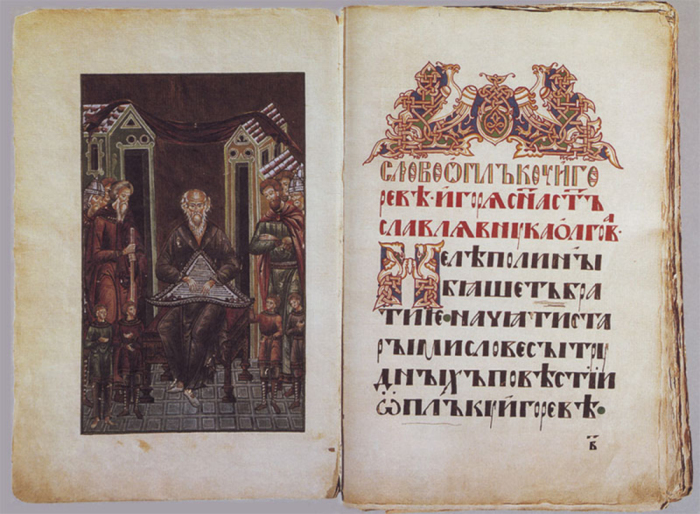 СЛОВОѠПЛЪКОУИГО
РЕВѢ·ИГОРѦСН҃АСТ҃Ъ
СЛАВЛѦВНꙊКАОЛГОВА
НЕЛѢПОЛИНЫ
БѦШЕТЪБРА
ТИЕ·НАЧѦТИСТА
РЫМИСЛОВЕСЫТРꙊ
ДНЫХЪПОВѢСТІИ
ѠПЛЪКꙊИГОРЕВѢ·
В҃